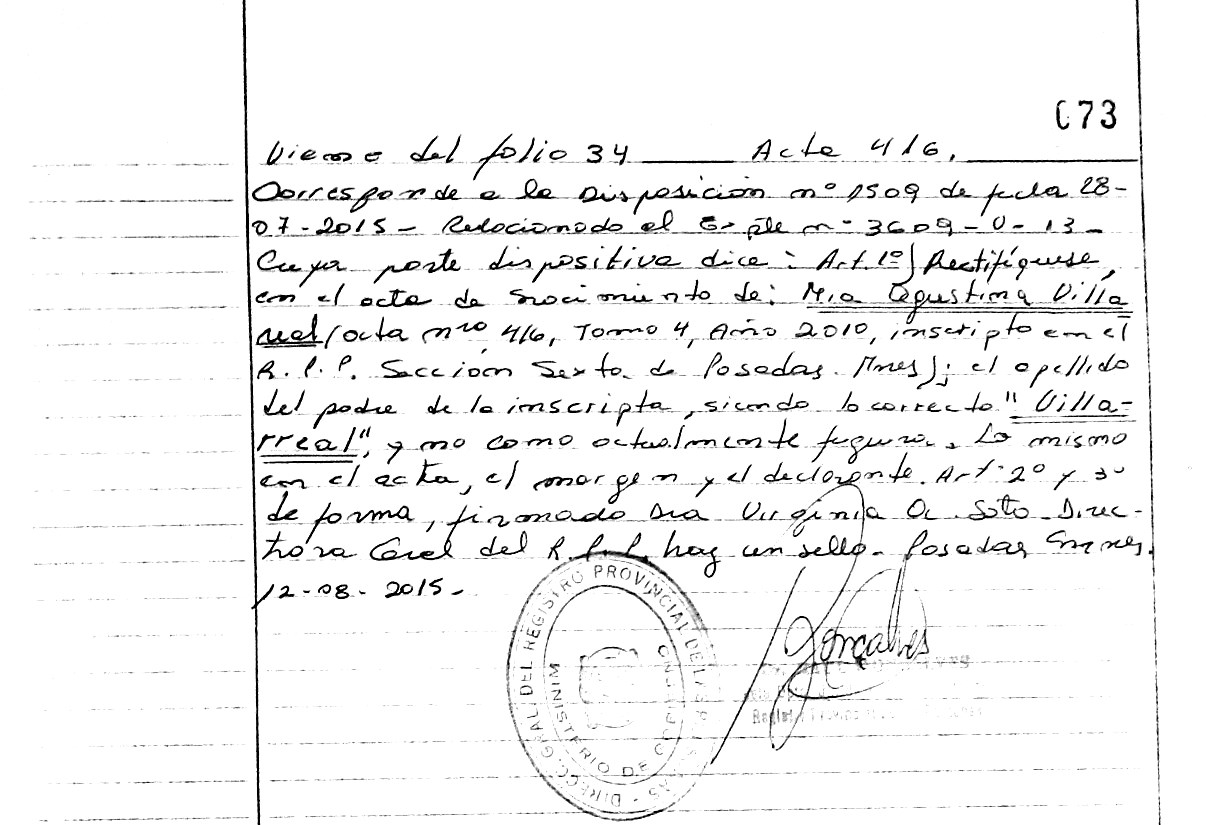 073
Viene del folio 34 Acta 416.
Corresponde a la Disposición nº 1509 de fecha 28-
07-2015- Relacionado al Expte nº 3609-V-13-
Cuya parte dispositiva dice: Art. 1º) Rectifíquese,
en el acta de nacimiento de: Mia Agustina Villa
real (acta nro 416, Tomo 4, Año 2010, inscripto en el
R.P.P. Sección Sexta de Posadas. Mnes); el apellido
del padre de la inscripta, siendo lo correcto "Villa-
rreal", y no como actualmente figura. Lo mismo
en el acta, el margen y el declarante. Art. 2º y 3º
de forma, firmado Dra Virginia A. Soto Direc-
tora Gral del R.P.P. hay un sello. Posadas Mnes.
12-08-2015-
DIRECC. GRAL. DEL REGISTRO PROVINCIAL DE LAS
MINISTERIO DE
Gonçalves